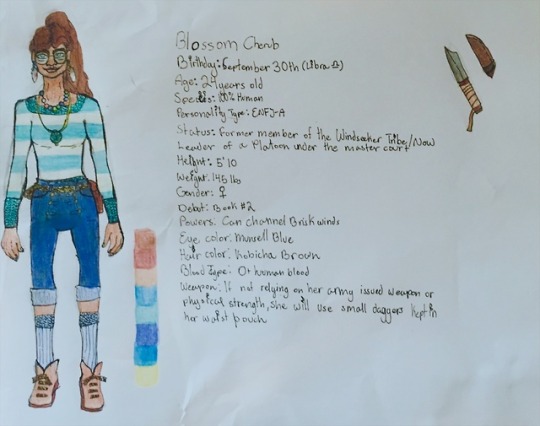 Blossom Cherub
Birthday: September 30th (Libra ♎)
Age: 24 years old
Species: 100% Human
Personality Type: ENFJ-A
Status: Former member of the Windseaker Tribe/Now
Leader of a Platoon under the master court
Height: 5'10
Weight: 145 lb
Gender: ♀
Debut: Book #2
Powers: Can channel Brisk winds
Eye color: Munsell Blue
Hair color: Kobicha Brown
Blood Type: O+ human blood
Weapon: If not relying on her army issued weapon or
physical strength, she will use small daggers kept in
her waist pouch